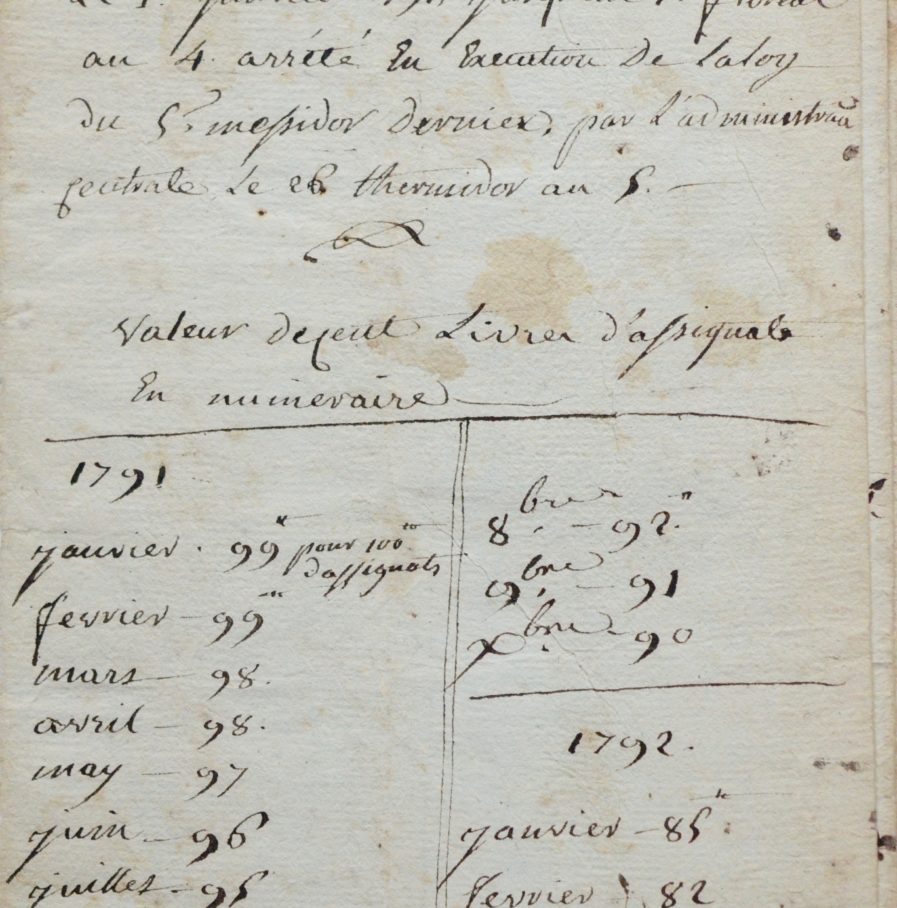 au 4. arrété En Execution De Laloy
du 5. messidor Dernier, par L'administraõn
centrale Le 26 thermidor an 5. —
Valeur decent Livres d'assignats
En numeraire
1791
janvier . 99# pour 100#
d'assignats
fevrier — 99#
mars — 98.
avril — 98.
may — 97
juin — 96
juillet - 95
8bre — 92#
9bre — 91
Xbre - 90
1792.
janvier — 85#
fevrier 82